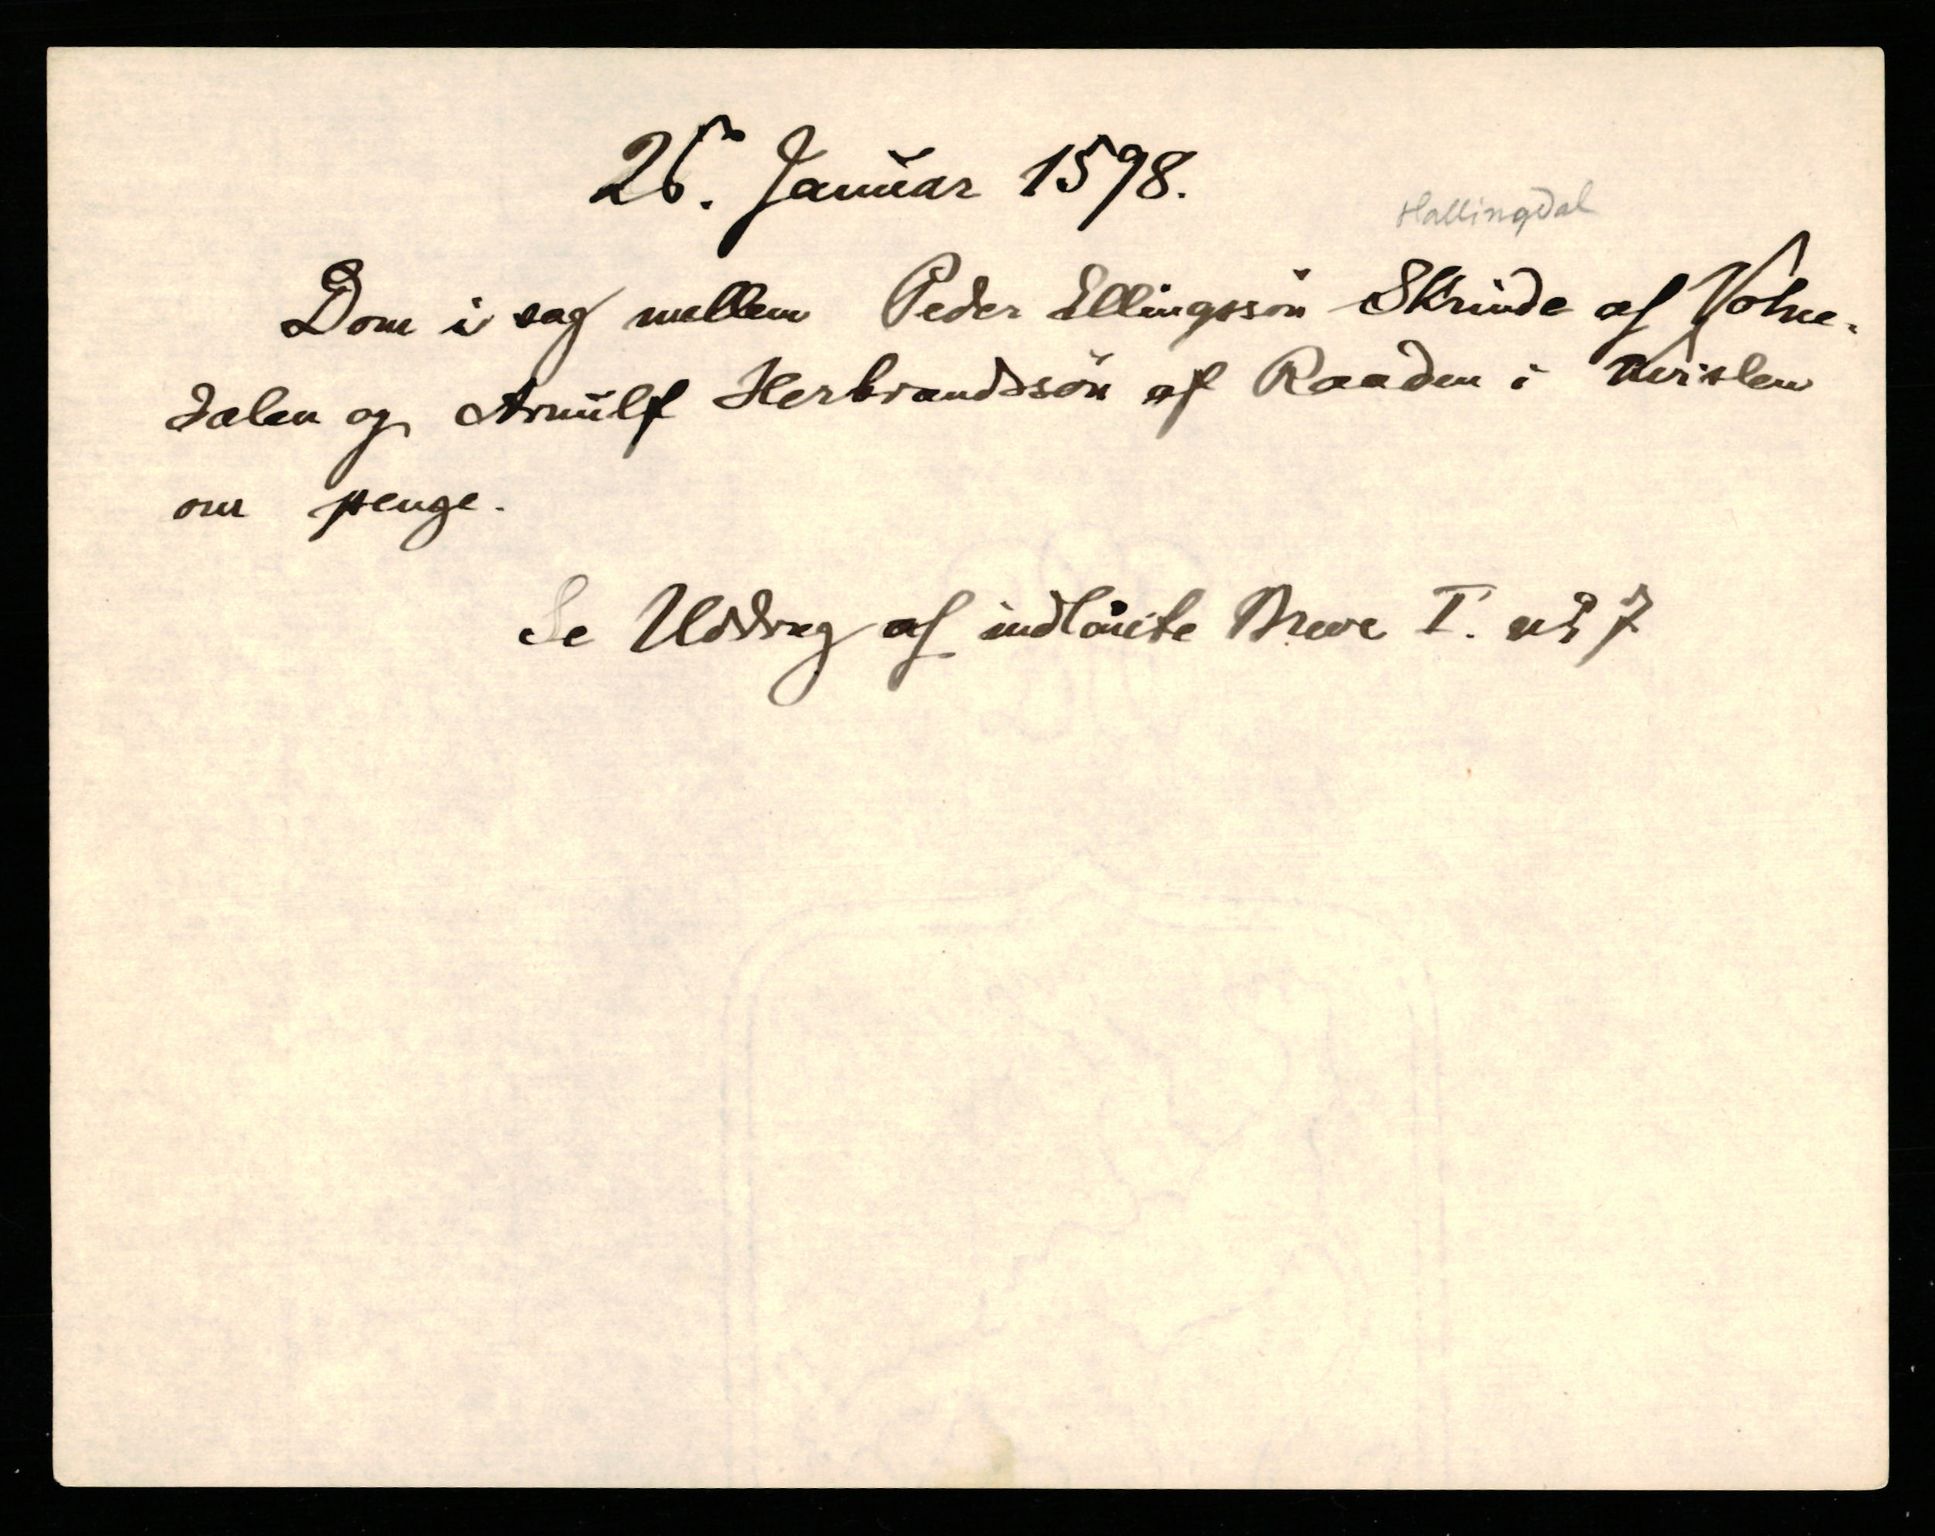 25. Januar 1598.
Hallingdal
Dom i sag mellem Peder Ellingssön Skrinde af Votne-
dalen og Arnulf Herbrandssön af Raaden i Hvislen
om penge.
Se Uddrag af indlånte Breve I. nº 7